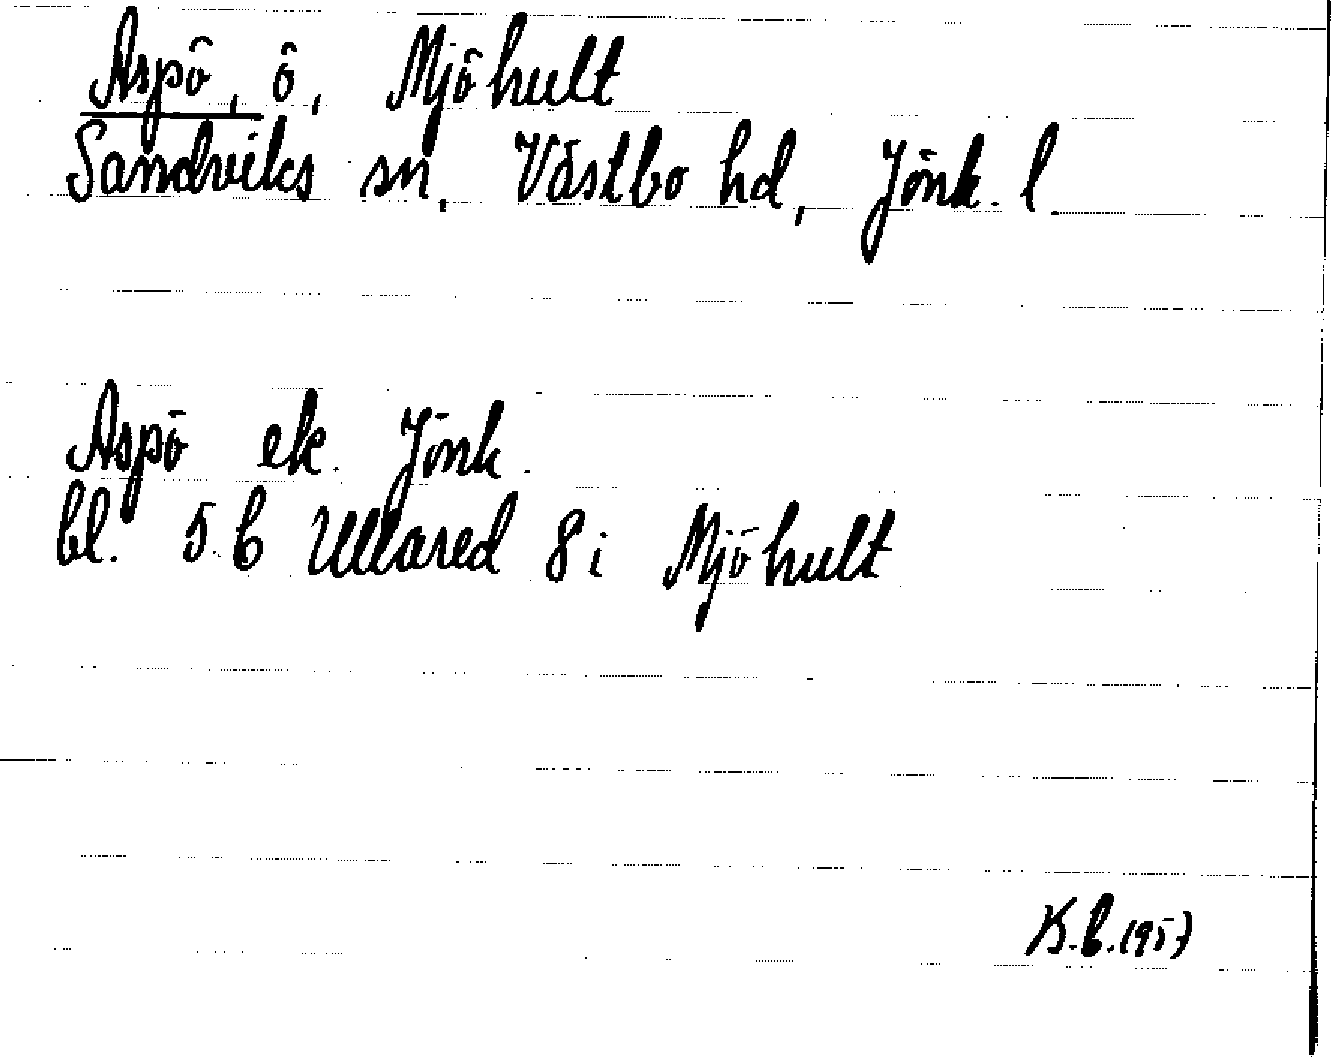 Aspö, ö, Mjöhult
Sandviks sn, Västbo hd, Jönk. l.
Aspö ek. Jönk.
bl. 5 C Ullared 8 i Mjöhult
K.G. 1957